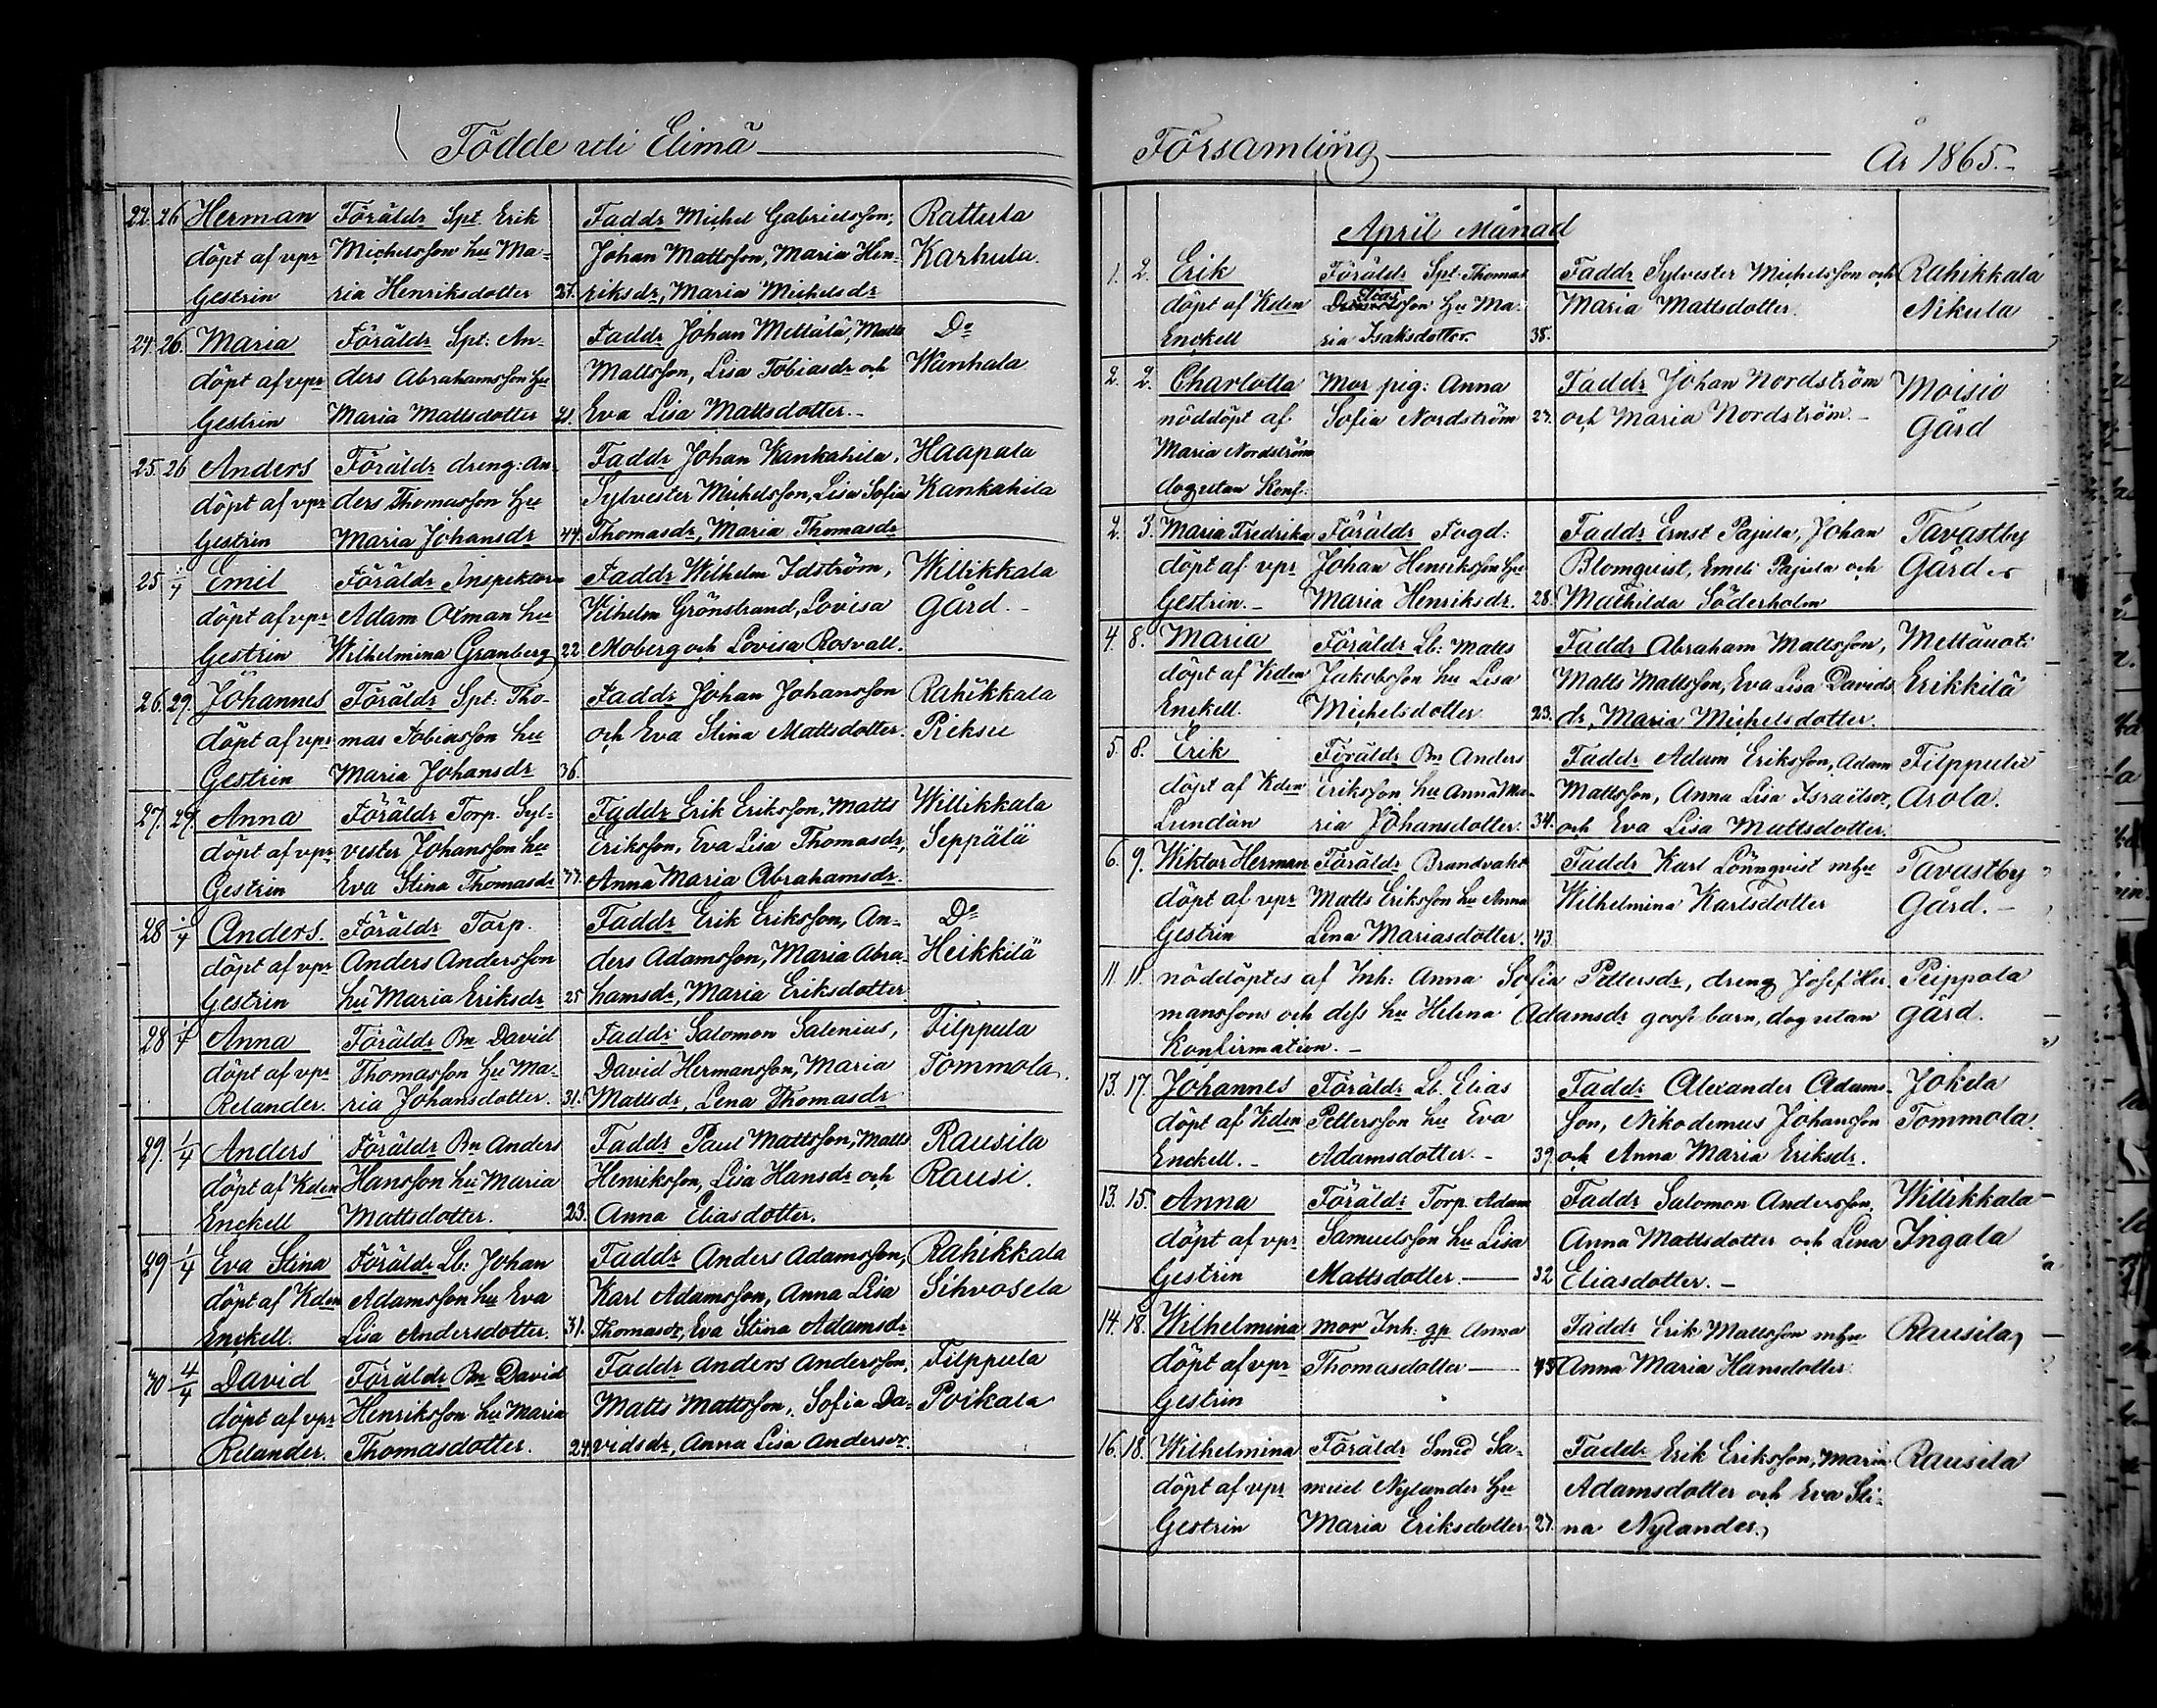 Födde uti Elimä
27. 26 Herman Föräldr Spt. Erik Faddr Michel Gabrielsson, Rattula
döpt af vpr Michelsson hu Ma- Johan Mattsson, Maria Hen- Karhula.
Gestrin ria Henriksdotter 27. riksdr, Maria Michelsdr
24. 26. Maria Föräldr Spt: An- Faddr Johan Mettälä, Matts Do
döpt af vpr ders Abrahamsson hu Mattsson, Lisa Tobiasdr och Wanhala
Gestrin Maria Mattsdotter 21. Eva Lisa Mattsdotter.-
25. 26 Anders Föräldr dreng: An- Faddr Johan Kankahila, Haapala
döpt af vpr ders Thomasson hu Sylvester Michelsson, Lisa Sofia Kankahila
Gestrin Maria Johansdr 44. Thomasdr, Maria Thomasdr
25. 1/4 Emil Föräldr Inspektorn Faddr Wilhelm Idström, Willikkala
döpt af vpr Adam Oxman hu Wilhelm Grönstrand, Lovisa Gård.-
Gestrin Wilhelmina Granberg 22. Moberg och Lovisa Rosvall.
26. 29. Johannes Föräldr Spt: Tho- Faddr Johan Johansson Rahikkala
döpt af vpr mas Tobiasson hu och Eva Stina Mattsdotter. Piksu
Gestrin Maria Johansdr 36.
27. 29. Anna Föräldr Torp. Syl- Faddr Erik Eriksson, Matts Willikkala
döpt af vpr vester Johansson hu Eriksson, Eva Lisa Thomasdr, Seppälä
Gestrin Eva Stina Thomasdr 37. Anna Maria Abrahamsdr.
28 1/4 Anders. Föräldr Torp. Faddr Erik Eriksson, An- Do
döpt af vpr Anders Andersson ders Adamsson, Maria Abra- Heikkilä
Gestrin hu Maria Eriksdr 25 hamsdr, Maria Eriksdotter
28 1/4 Anna Föräldr Bn David Faddr Salomon Salenius, Filppula
döpt af vpr Thomasson hu Ma- David Hermansson, Maria Tommola.
Relander. ria Johansdotter. 31. Mattsdr, Lena Thomasdr
29. 1/4 Anders Föräldr Bn Anders Faddr Paul Mattsson, Matts Rausila
döpt af Kden Hansson hu Maria Henriksson, Lisa Hansdr och Rausi.
Enckell Mattsdotter. 23. Anna Eliasdotter.
29 1/4 Eva Stina Föräldr Lb: Johan Faddr Anders Adamsson, Rahikkala
döpt af Kden Adamsson hu Eva Karl Adamsson, Anna Lisa Sihvosela
Enckell. Lisa Andersdotter. 31. Thomasdr, Eva Stina Adamsdr
30 4/4 David Föräldr Bn David Faddr Anders Andersson, Filppula
döpt af vpr Henriksson hu Maria Matts Mattsson, Sofia Da- Poikala
Relander. Thomasdotter. 24. vidsdr, Anna Lisa Andersdr.
Församling År 1865.-
April Månad
1. 2. Erik Föräldr Spt: Thomas Faddr Sylvester Michelsson och Rahikkala
döpt af Kden Eliasson hu Ma- Maria Mattsdotter. Nikula
Enckell ria Isaksdotter 38.
2. 2. Charlotta Mor pig: Anna Faddr Johan Nordström Moisio
nöddöpt af Sofia Nordström 27. och Maria Nordström.- Gård
Maria Nordström
dog utan Konf:
2. 3. Maria Fredrika Föräldr Fogd: Faddr Ernst Pajula, Johan Tavastby
döpt af vpr Johan Henriksson hu Blomqvist, Emeli Pajula och Gård
Gestrin.- Maria Henriksdr. 28. Mathilda Söderholm
4. 8. Maria Föräldr Lb: Matts Faddr Abraham Mattsson, Mettäuoti
döpt af Kden Jakobsson hu Lisa Matts Mattsson, Eva Lisa Davids Erikkilä
Enckell. Michelsdotter 23. dr, Maria Michelsdotter.
5. 8. Erik Föräldr Bn Anders Faddr Adam Eriksson, Adam Filppula
döpt af Kden Eriksson hu Anna Ma- Mattsson, Anna Lisa Israelsdr, Arola.
Lundán ria Johansdotter. 34. och Eva Lisa Mattsdotter.
6. 9. Wiktor Herman Föräldr Brandvakt Faddr Karl Lönnqvist mhu Tavastby
döpt af vpr Matts Eriksson hu Anna Wilhelmina Karlsdotter Gård.-
Gestrin Lena Mariasdotter. 43.
11. 11. nöddöptes af Inh: Anna Sofia Pettersdr, dreng Josef Her Peippola
manssons och dess hu Helena Adamsdr gosse barn, dog utan gård.
Konfirmation.-
13. 17. Johannes Föräldr Lb. Elias Faddr Alexander Adams- Jokela
döpt af Kden Pettersson hu Eva son, Nikodemus Johansson Tommola.
Enckell.- Adamsdotter.- 39. och Anna Maria Eriksdr.
13. 15. Anna Föräldr Torp. Adam Faddr Salomon Andersson, Willikkala
döpt af vpr Samuelsson hu Lisa Anna Mattsdotter och Lena Ingala
Gestrin Mattsdotter.- 32 Eliasdotter.-
14. 18. Wilhelmina mor Inh: gp Anna Faddr Erik Mattsson mhu Rausila
döpt af vpr Thomasdotter 45 Anna Maria Hansdotter
Gestrin
16. 18. Wilhelmina Föräldr Smed Sa- Faddr Erik Eriksson, Maria Rausila
döpt af vpr muel Nylander hu Adamsdotter och Eva Sti-
Gestrin Maria Eriksdotter 27. na Nylander.